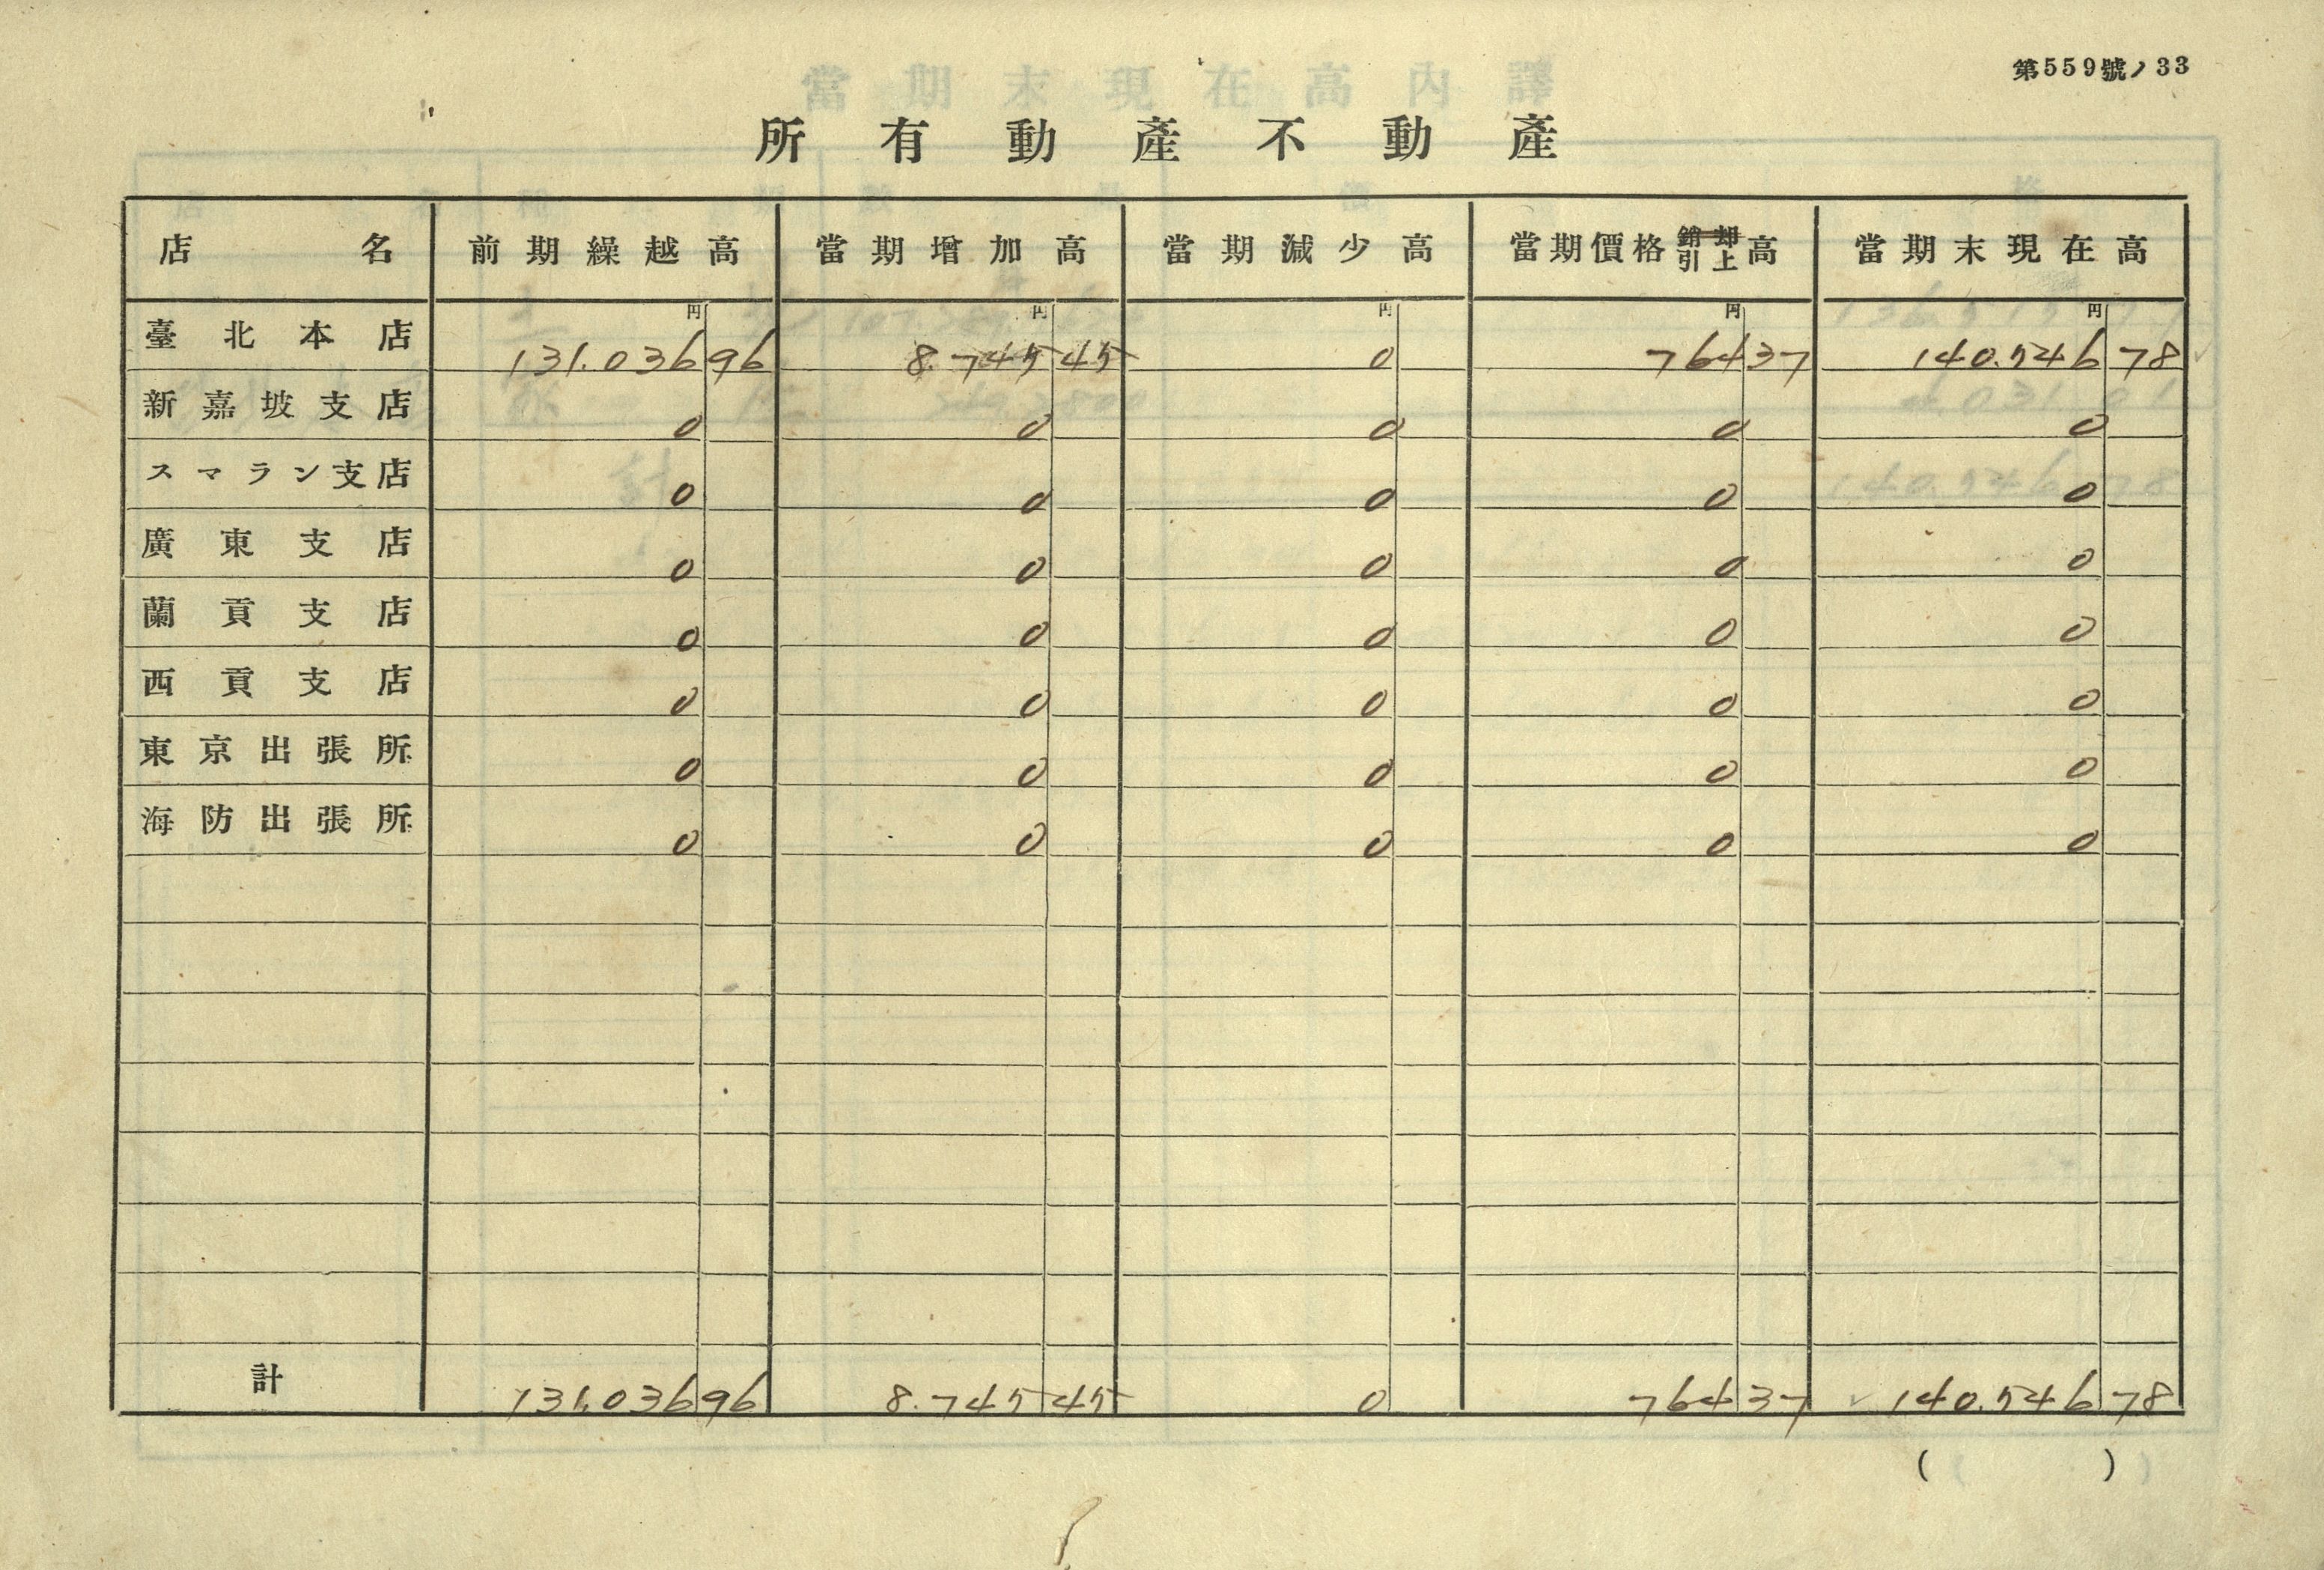 第559號ノ33
所有動產不動產
店名 前期繰越高 當期增加高 當期減少高 當期價格銷却引上高 當期末現在高
円 円 円 円 円
臺北本店 131.036 96 8.745 45 0 764 37 140.546 78
新嘉坡支店 0 0 0 0 0
スマラン支店 0 0 0 0 0
廣東支店 0 0 0 0 0
蘭貢支店 0 0 0 0 0
西貢支店 0 0 0 0 0
東京出張所 0 0 0 0 0
海防出張所 0 0 0 0 0
計 131.036 96 8.745 45 0 764 37 140.546 78
( )